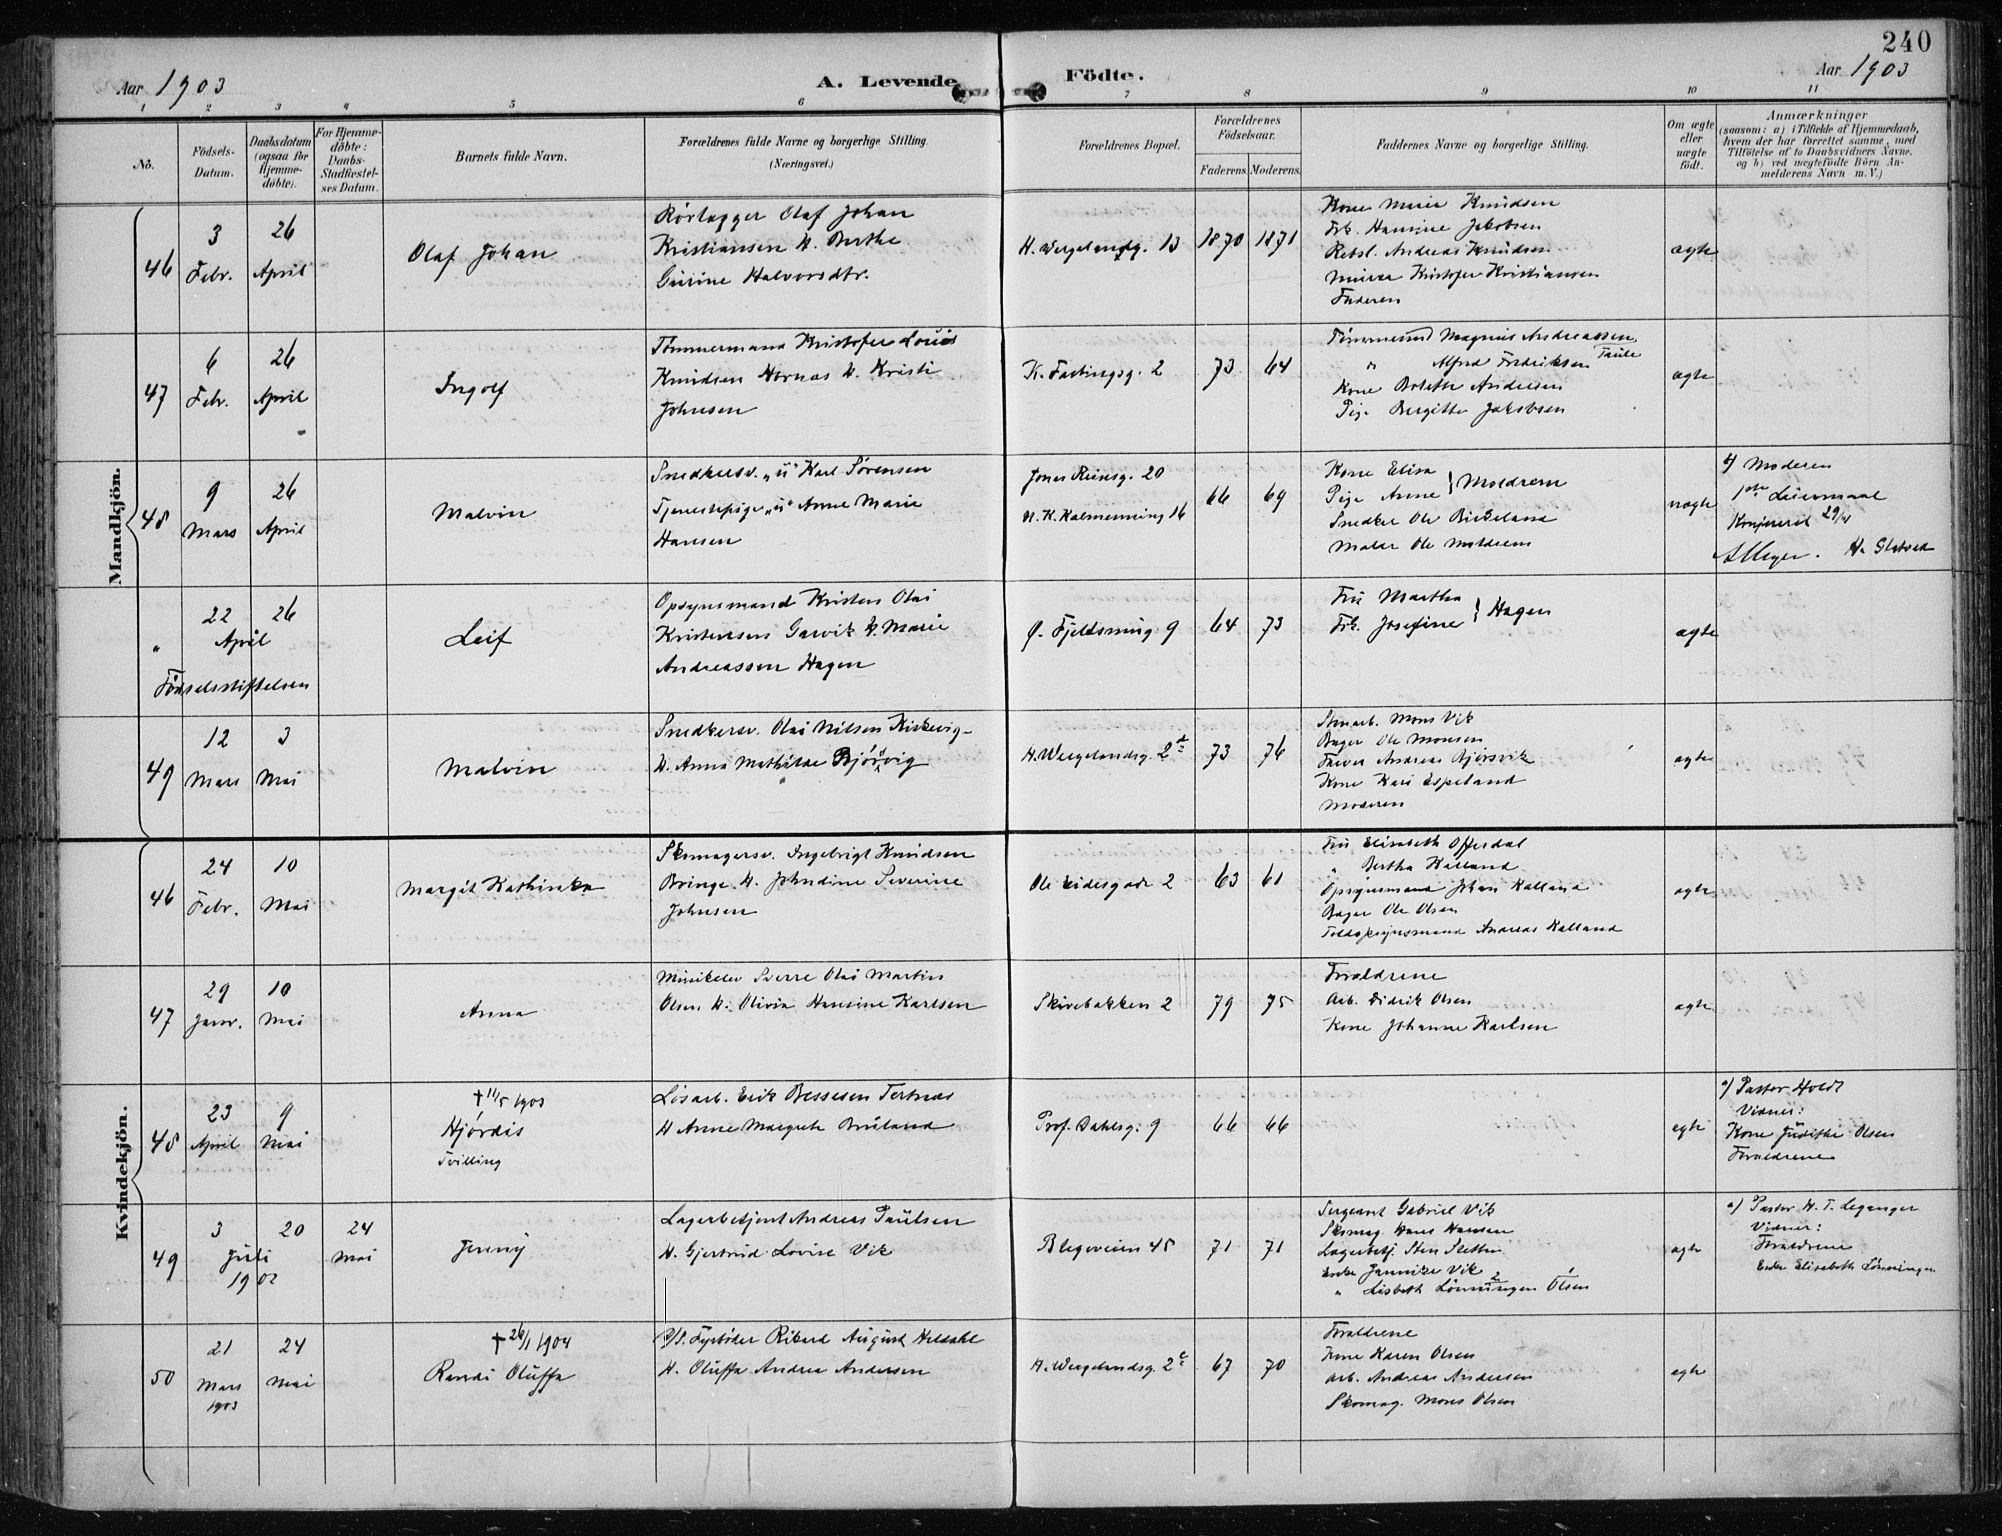 240
Aar 1903
A. Levende Födte.
Aar 1903
1 2 3 4 5 6 7 8 9 10 11
No.
Födsels-Datum.
Daabsdatum (ogsaa for Hjemme-döbte).
For Hjemme-döbte: Daabs-Stadfæstel-ses Datum.
Barnets fulde Navn.
Forældrenes fulde Navne og borgerlige Stilling.
(Næringsvei.)
Forældrenes Bopæl.
Forældrenes Födselsaar.
Faderens. Moderens.
Faddernes Navne og borgerlige Stilling.
Om ægte eller uægte födt.
Anmærkninger
(saasom: a) i Tilfælde af Hjemmedaab, hvem der har forrettet samme, med Tilföielse af to Daabsvidners Navne. og b) ved uægtefödte Börn Anmelderens Navn m. V.)
Mandkjön.
46
3 Febr.
26 April
Olaf Johan
Rörlægger Olaf Johan
Kristiansen H. Berthe
Gurine Halvorsdtr.
H. Wergelandg. 13
1870 1871
Kone Marie Knudsen
Frk. Hansine Jakobsen
Rebsl. Andreas Knudsen
Murer Kristofer Kristiansen
Faderen
ægte
47
6 Febr.
26 April
Ingolf
Tömmermand Kristofer Louis
Knudsen Hornæs H. Kristi
Johnsen
K. Fastingsg. 2
73 64
Tömmermd Magnus Andreassen
" Alfred Fredriksen
Kone Andersen
Pige Bergitte Jakobsen
ægte
48
9 Mars
26 April
Malvin
Snedkersv. "u" Karl Sörensen
Tjenestepige "u" Anne Marie
Hansen
Jonas Reinsg. 20
N. K. Kalmenning 16
66 69
Kone Elisa
Pige Anne } Moldrem
Snedker Ole Birkeland
Maler Ole Moldrem
uægte
b) Moderen
1ste Leiermaal
29/4
"
22 April
26
Födselsstiftelsen
Leif
Opsynsmand Kristen Olai
Kristensen Garvik H. Marie
Andreassen Hagen
Ø. Fjeldsmug 9
64 73
Fru Martha
Frk. Josefine } Hagen
ægte
49
12 Mars
3 Mai
Malvin
Snedkersv. Olai Nilsen Kirkevig
H. Anna Mathilde Björsvig
H. Wergelandsg. 2
73 76
Stenarb. Mons Vik
Bager Ole Monsen
Farver Andreas Bjørsvik
Kone Kari Espeland
Moderen
ægte
Kvindekjön.
46
24 Febr.
10 Mai
Margit Kathinka
Skomagersv. Ingebrigt Knudsen
Bringe H. Johndine Severine
Johnsen
Ole Eidesgade 2
63 61
Fru Elisabeth Offerdal
" Bertha Kalland
Opsynsmand Johan Kalland
Bager Ole Olsen
Toldopsynsmand Andreas Kalland
ægte
47
29 Janr.
10 Mai
Anna
Musikelev Sverre Olai Martin
Olsen H. Olivia Hansine Karlsen
Skivebakken 2
79 75
Forældrene
Arb. Didrik Olsen
Kone Johanne Karlsen
ægte
48
23 April
9 Mai
† 11/5 1903
Hjördis
Tvilling
Lösarb. Erik Bessesen Tertnæs
H Anne Margrete Bruland
Prof. Dahlsg. 9
66 66
ægte
a) Pastor Holdt
Vidner:
Kone Judithe Olsen
Forældrene
49
3 Juli 1902
20
24 Mai
Jenny
Lagerbetjent Andreas Paulsen
H. Gjertrud Lovise Vik
Blegeveien 45
71 71
Sergeant Gabriel Vik
Skomag. Hans Hansen
Lagerbetj. Sten
Enke Jannike Vik
" Lisbeth Lönningen Olsen
ægte
a) Pastor H. T. Leganger
Vidner:
Forældrene
Enke Elisabeth Lönningen
50
21 Mars 1903
24 Mai
† 26/1 1904
Randi Oluffa
D/S. Fyrböder Rikard August Hildahl
H. Oluffa Andrea Andersen
H. Wergelandsg. 2
67 70
Forældrene
Kone Karen Olsen
Arb. Andreas Andersen
Skomag. Mons Olsen
ægte